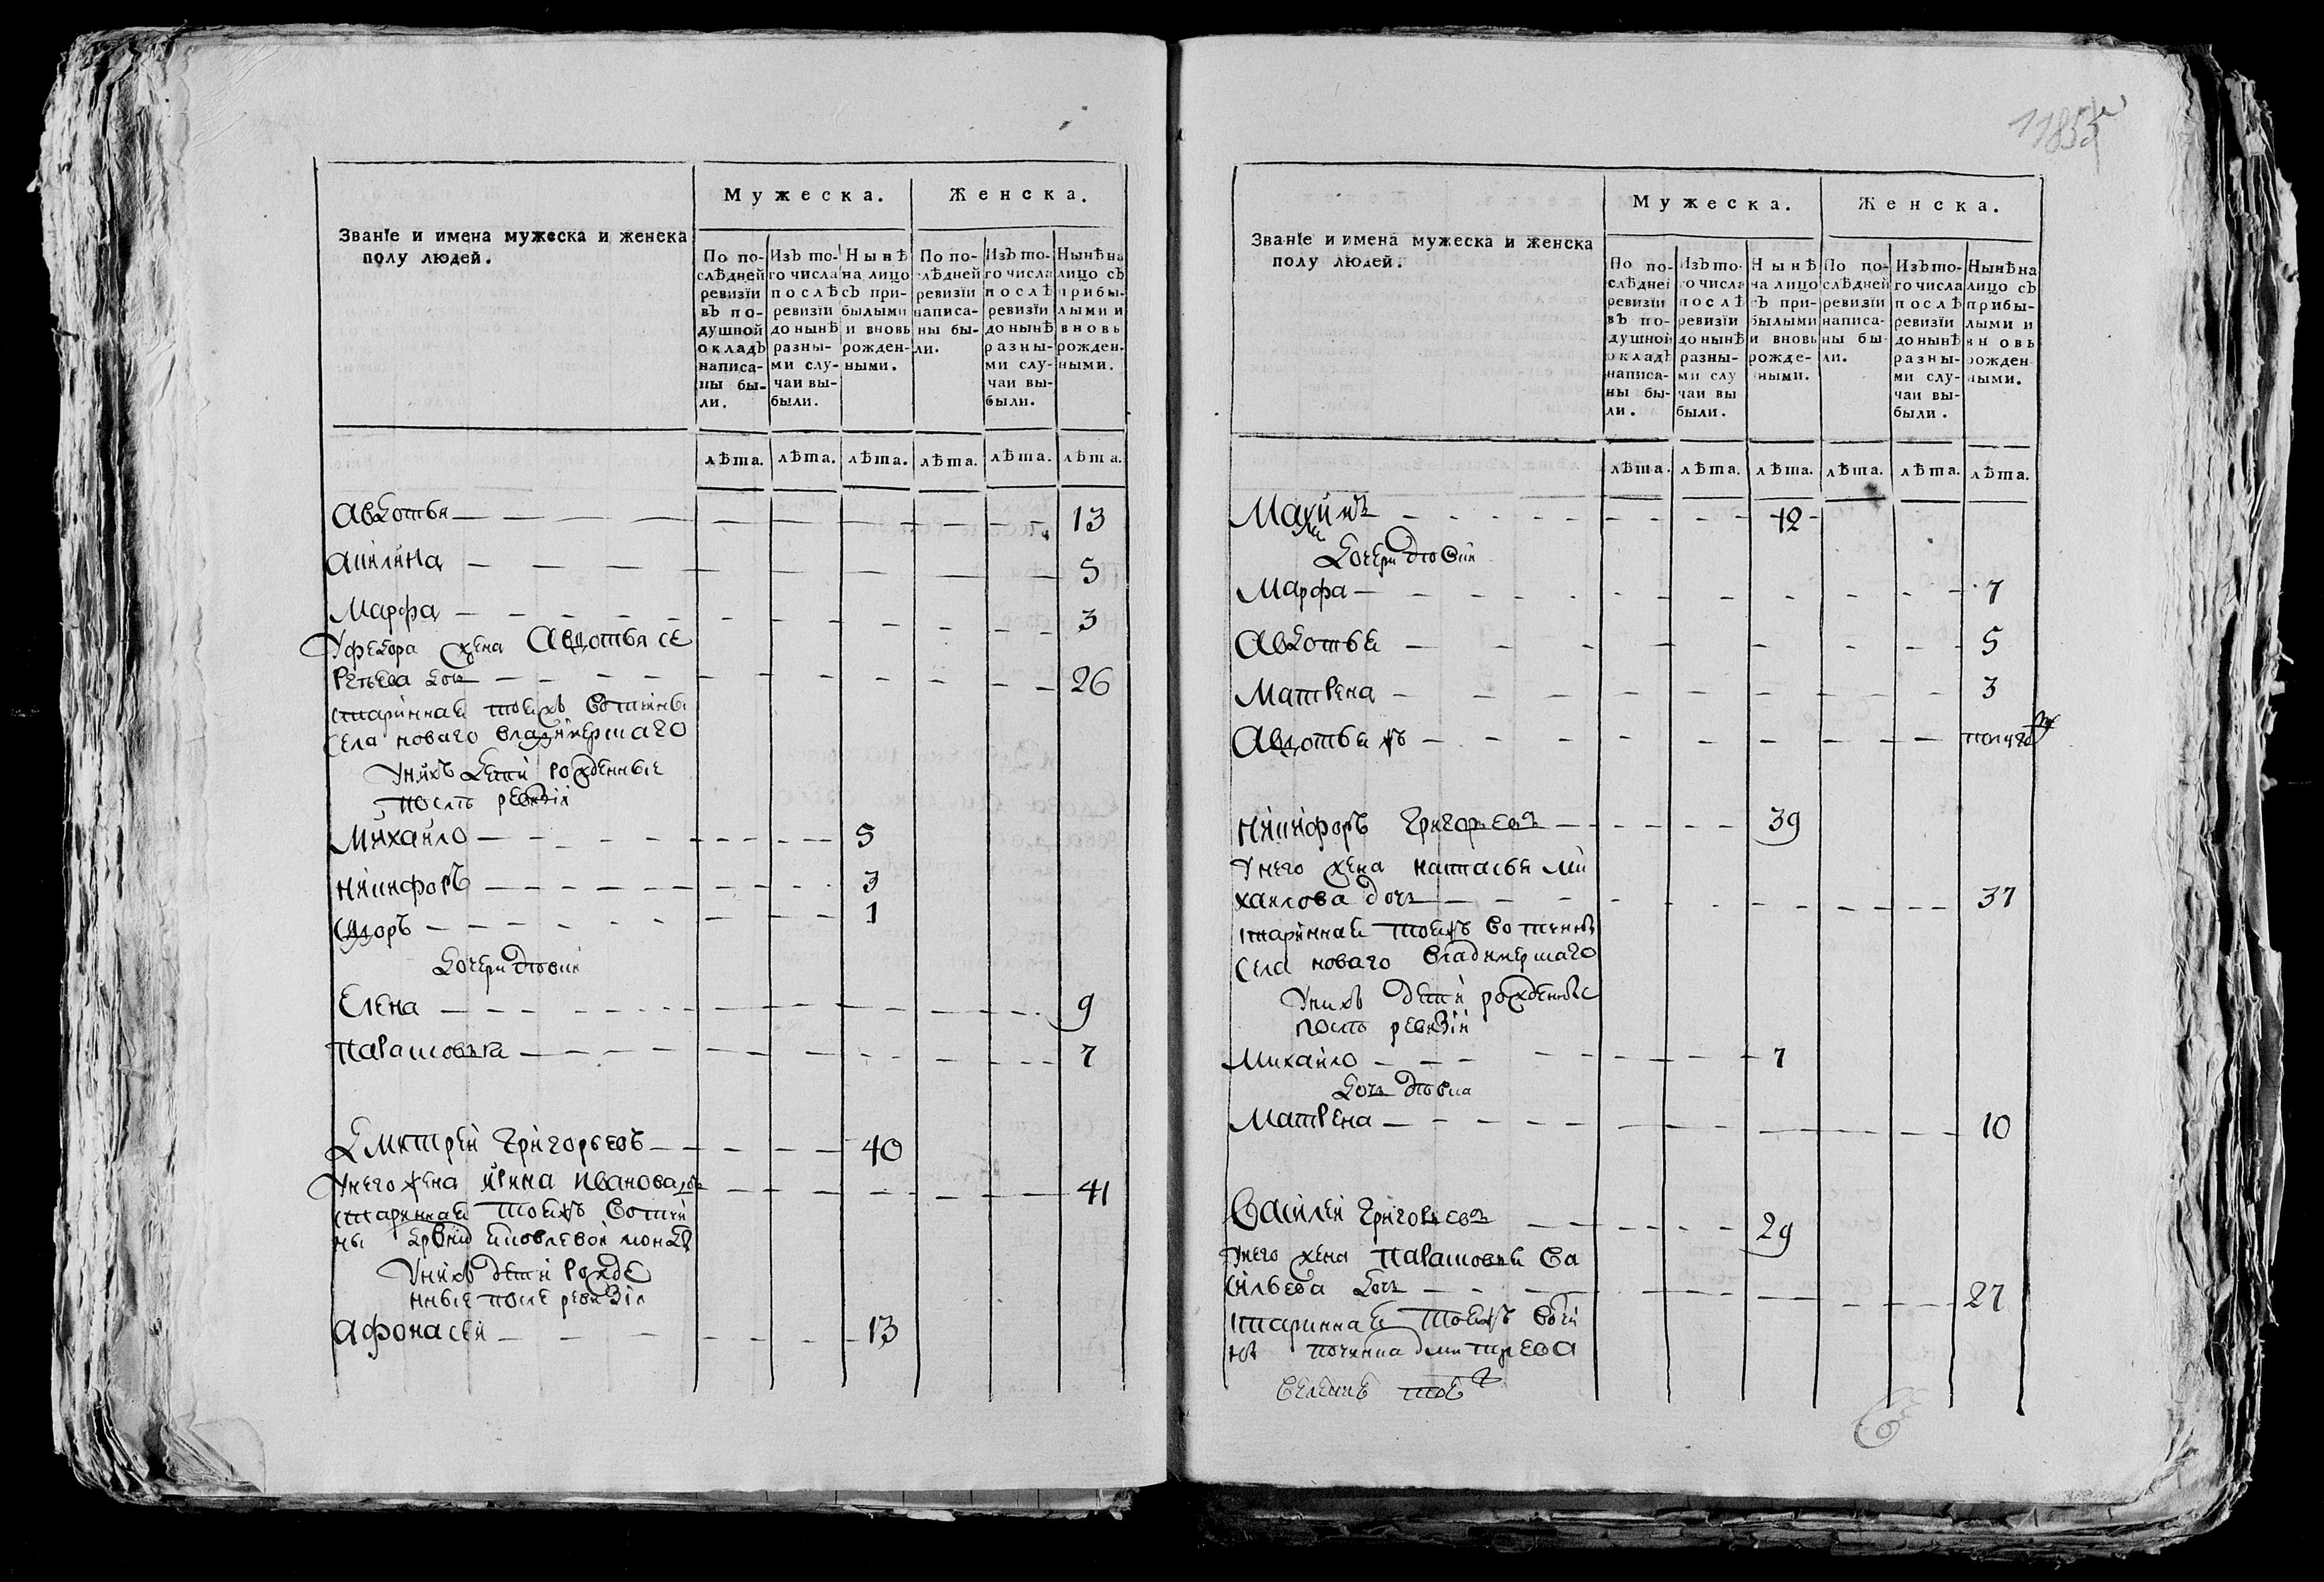 Званїе и имена мужеска и женска
полу людей.
Мужеска.
Женска.
По по-
слѣдней
ревизїи
въ по-
душной
окладѣ
написа-
ны бы-
ли.
Изъ то-
го числа
послѣ
ревизїи
до нынѣ
разны-
ми слу-
чаи вы-
были.
Нынѣ
на лицо
съ при-
былыми
и вновь
рожден-
ными.
По по-
слѣдней
ревизїи
написа-
ны бы-
ли.
Изъ то-
го числа
послѣ
ревизїи
до нынѣ
разны-
ми слу-
чаи вы-
были.
Нынѣ на
лицо съ
прибы-
лыми и
вновь
рожден-
ными.
лѣта. лѣта. лѣта. лѣта. лѣта. лѣта.
Авдотья 13
Акилина 5
Марфа 3
У федора жена Авдотья се
ргеева дочь 26
старинная тоеж вотчины
села новаго владимерскаго
У них дети рожденные
после ревизии
Михайло 5
Никифоръ 3
Сидоръ 1
дочери девки
Елена 9
Парасковья 7
Дмитрей Григорьевъ 40
У него жена Ирина Иванова дочь 41
старинная тоежъ вотчи
ны
У них дети рожде
нные после ревизии
Афонасей 13
1185
Званїе и имена мужеска и женска
полу людей.
Мужеска.
Женска.
По по-
слѣдней
ревизїи
въ по-
душной
окладѣ
написа-
ны бы-
ли.
Изъ то-
го числа
послѣ
ревизїи
до нынѣ
разны-
ми слу
чаи вы
были.
Нынѣ
на лицо
съ при-
былыми
и вновь
рожде-
нными.
По по-
слѣдней
ревизїи
написа-
ны бы-
ли.
Изъ то-
го числа
послѣ
ревизїи
до нынѣ
разны-
ми слу-
чаи вы-
были.
Нынѣ на
лицо съ
прибы-
лыми и
вновь
рожден
ными.
лѣта. лѣта. лѣта. лѣта. лѣта. лѣта.
12
дочери девки
Марфа 7
Авдотья 5
Матрена 3
Авдотья ж
Никифоръ Григорьевъ 39
У него жена Настасья Ми
хаилова дочь 37
старинная тоежъ вотчины
села новаго владимерскаго
У нихъ дети рожденные
после ревизии
Михайло 7
дочь девка
Матрена 10
Василей Григорьевъ 29
У него жена Парасковья Ва
сильева дочь 27
старинная тоежъ вотчи
ны починка дмитреева